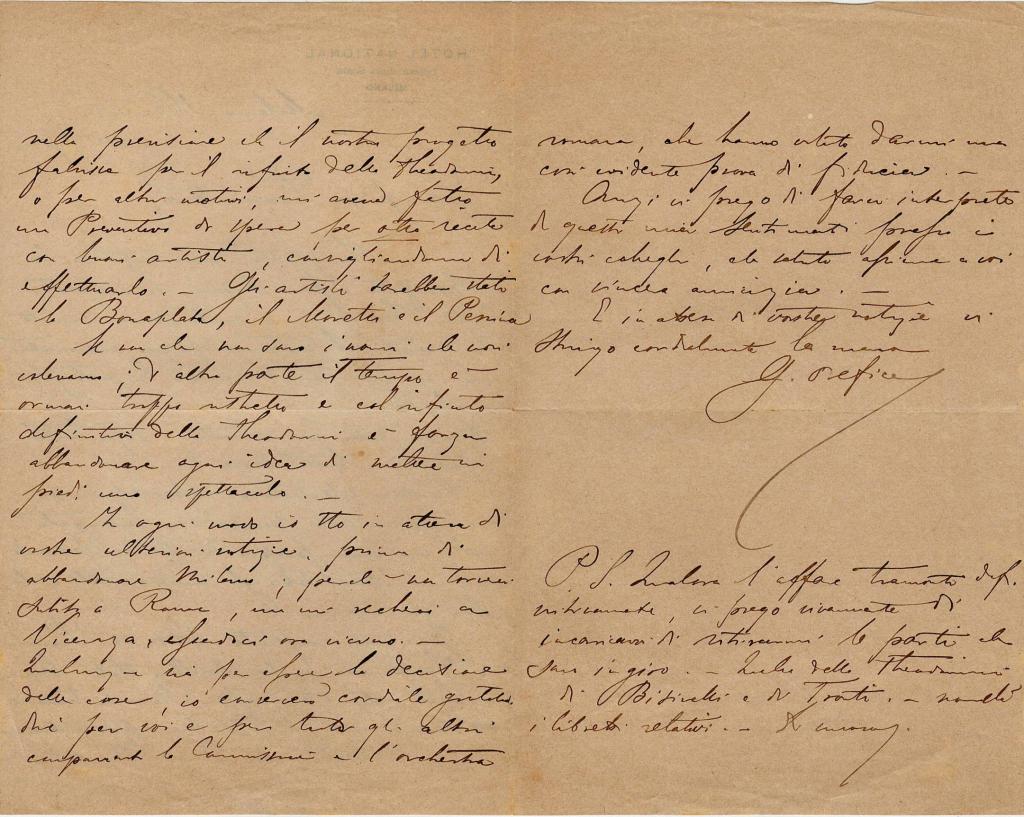 nella previsione che il nostro progetto
fallisca per il rifiuto della Theodorini,
o per altri motivi, mi aveva fatto
un Preventivo di spese per otto recite
con buoni artisti, consigliandomi di
effettuarlo. — Gli artisti sarebbero stati
la Bonaplata, il Moretti e il Pessina
Se non che non sono i nomi che noi
volevamo; d'altra parte il tempo è
ormai troppo ristretto e col rifiuto
definitivo della Theodorini è forza
abbandonare ogni idea di mettere in
piedi uno spettacolo. —
In ogni modo io sto in attesa di
vostre ulteriori notizie, prima di
abbandonare Milano; perchè non tornerei
subito a Roma, ma mi recherei a
Vicenza, essendoci ora vicino. —
Qualunque sia per essere la decisione
delle cose, io conserverò cordiale gratitu-
dine per voi e per tutti gli altri
componenti la Commissione e l'orchestra
HOTEL NATIONAL
MILANO
romana, che hanno voluto darmi una
così evidente prova di fiducia. —
Anzi vi prego di farvi interprete
di questi miei sentimenti presso i
vostri colleghi, che saluto assieme a voi
con vivissima amicizia. —
E in attesa di vostre notizie vi
stringo cordialmente la mano
G. Orefice
P.S. Qualora l'affare tramonti defi-
nitivamente, vi prego vivamente di
incaricarvi di ritirarmi le parti che
sono in giro. — Quelle della Theodorini
di e di — nonchè
i libretti relativi. — Di nuovo.